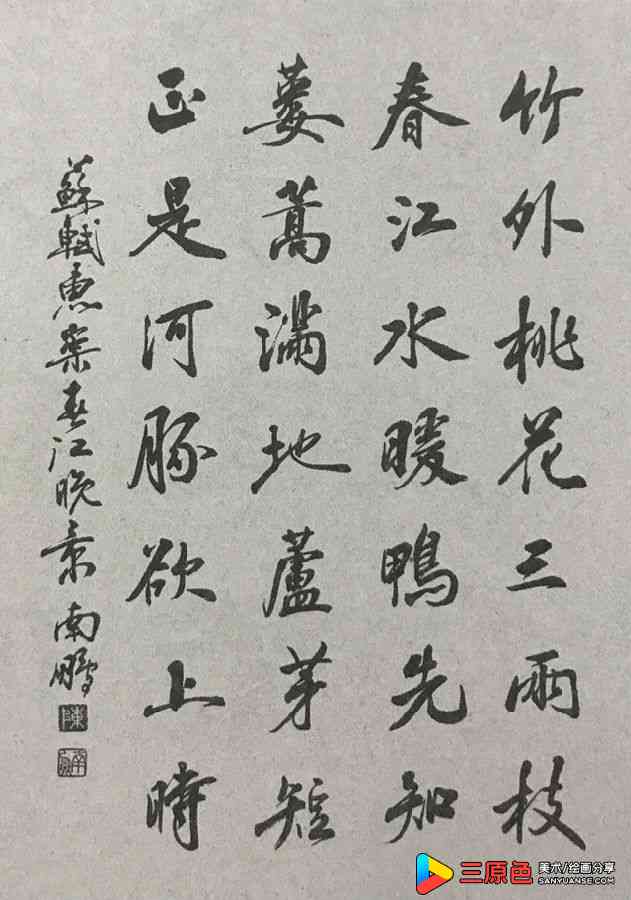 竹外桃花三兩枝
春江水暖鴨先知
蔞蒿滿地蘆芽短
正是河豚欲上時
蘇軾惠崇春江晚景 南鵬
陳
三原色 美术/绘画分享
SANYUANSE.COM